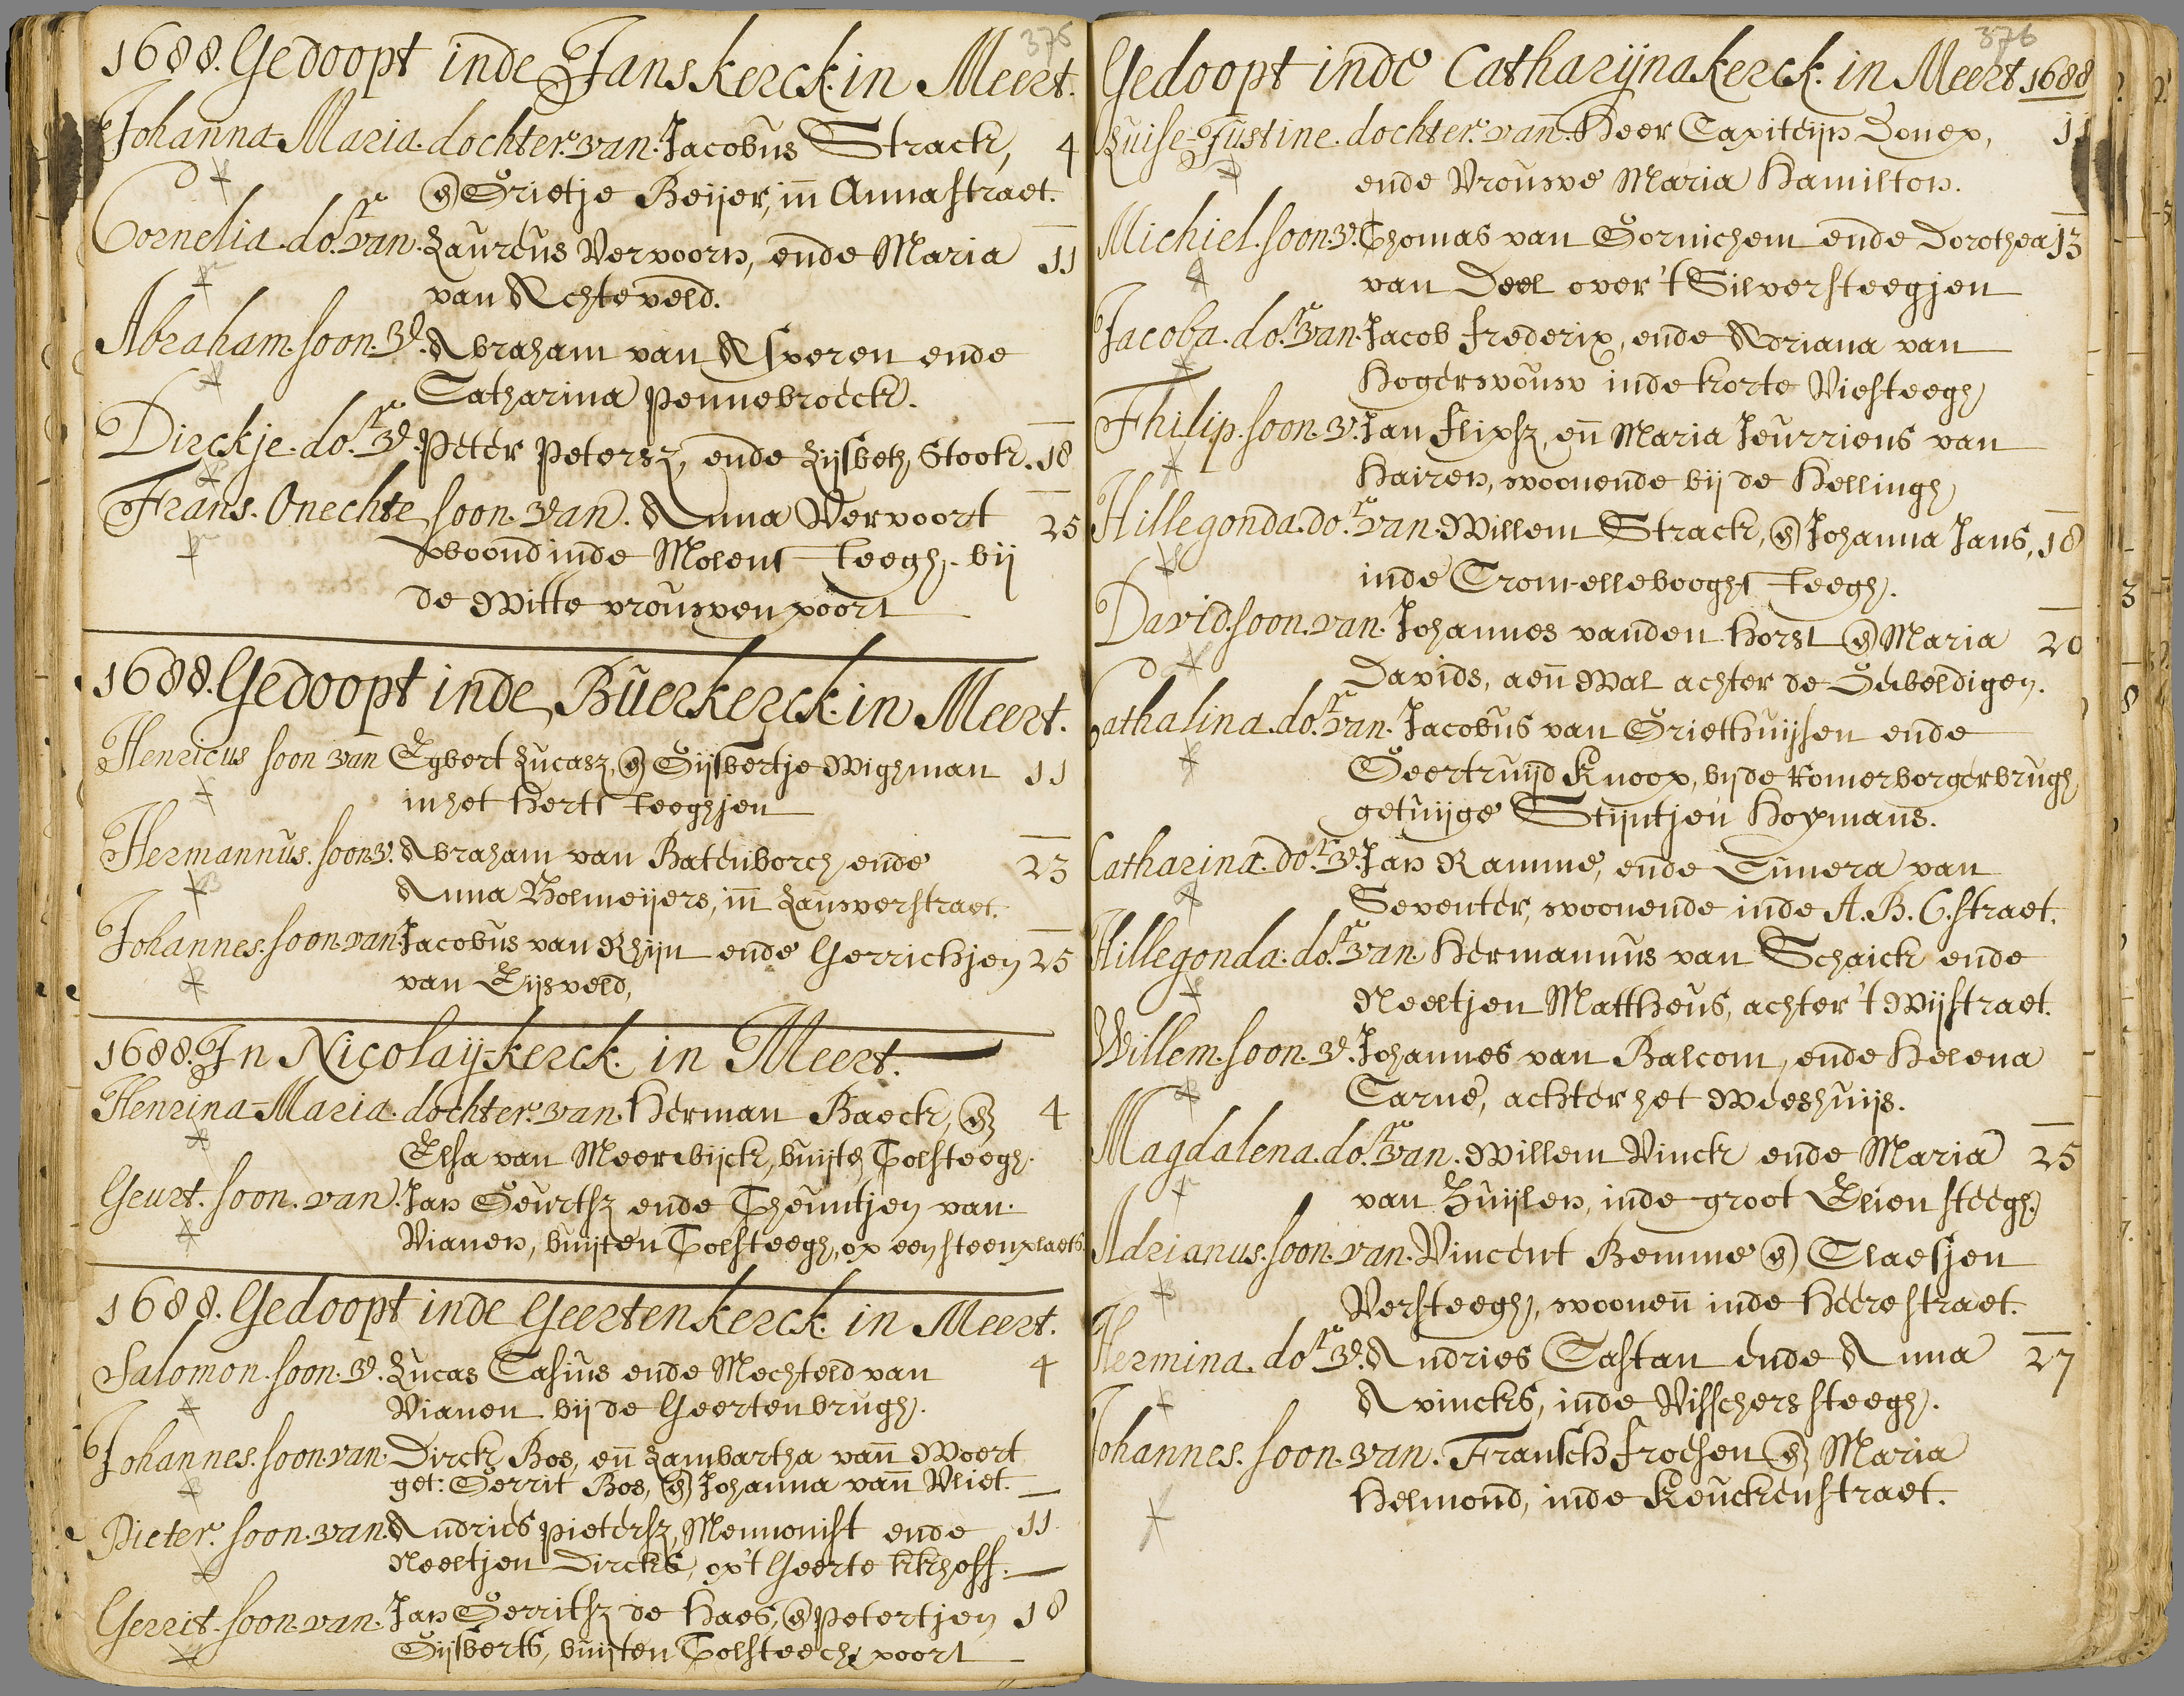 375
1688. Gedoopt inde Janskerck. in Meert.
Johanna-Maria. dochter. van. Jacobus Strack, 4
en Grietje Beijer, in Annastraet.
Cornelia. do.r van. Laureus Vervoorn, ende Maria 11
van Achteveld.
Abraham. soon. v. Abraham van Asperen ende
Catharina Pennebroeck.
Dirckje. do.r v. Peter Petersz, ende Lijsbeth Stook. 18
Frans. Onechte soon. van. Anna Vervoort 25
woond inde Molensteegh. bij
de Witte vrouwen poort
1688. Gedoopt inde Buerkerck. in Meert.
Henricus soon van Egbert Lucasz, en Gijsbertje Wighman 11
in het Hertsteeghjen
Hermannus. soon v. Abraham van Batenborch, ende 23
Anna Holmeijers, in Lauwerstraet.
Johannes. soon. van Jacobus van Rhijn ende Gerrichjen 25
van Eijsveld,
1688. In Nicolaij-kerck. in Meert.
Henrina-Maria. dochter. van. Herman Baeck, en 4
Elsa van Meerwijck, buijten Tolsteegh.
Geurt. soon. van. Jan Geurtsz ende Theuntjen van
Vianen, buijten Tolsteegh, op een steenplaets.
1688. Gedoopt inde Geertenkerck. in Meert.
Salomon. soon. v. Lucas Casius ende Mechteld van 4
Vianen bij de Geertenbrugh.
Johannes. soon. van. Dirck Bos, en Lambartha van Woert
get: Gerrit Bos, en Johanna van Vliet.
Pieter. soon. van. Andries Pietersz, Mennonist ende 11
Neeltjen Dircks, op't Geerte kkhoff.
Gerrit. soon. van. Jan Gerritsz de Haes, en Petertjen 18
Gijsberts, buijten Tolsteech poort
376
Gedoopt inde Catharijnakerck. in Meert 1688
Luise-Justine. dochter. van. Heer Capiteijn Donep, 11
ende Vrouwe Maria Hamilton.
Michiel. soon. v. Thomas van Gornichem ende Dorothea 13
van Deel over 't Silversteegjen
Jacoba. do.r van. Jacob frederix, ende Adriana van
Hogerwouw inde korte Viesteegh
Fhilip. soon. v. Jan flipsz, en Maria Jeurriens van
Hairen, woonende bij de Hellingh
Hillegonda. do.r van. Willem Strack, en Johanna Jans, 18
inde Crom-elleboogh steegh.
David. soon. van. Johannes vanden Horst en Maria 20
Davids, aen Wal achter de Geweldigen.
Cathalina. do.r van. Jacobus van Griethuijsen ende
Geertruijd Knoop, bijde Romerborgerbrugh
getuijge Stijntjen Hoymans.
Catharina. do.r v. Jan Ramme, ende Eimera van
Deventer, woonende inde A. B. C. straet.
Hillegonda. do.r van. Hermannus van Schaick ende
Neeltjen Mattheus, achter 't Wijstraet.
Willem. soon. v. Johannes van Balcom, ende Helena
Carne, achter het Weeshuijs.
Magdalena. do.r van. Willem Vinck ende Maria 25
van Zuijlen, inde groot Elien steegh.
Adrianus. soon. van. Vincent Bemme en Claesjen
Versteegh, woonen inde Heerestraet.
Hermina. do.r v. Andries Castan ende Anna 27
Avincks, inde Visschers steegh.
Johannes. soon. van. Fransch frochen en Maria
Helmond, inde Keuckenstraet.